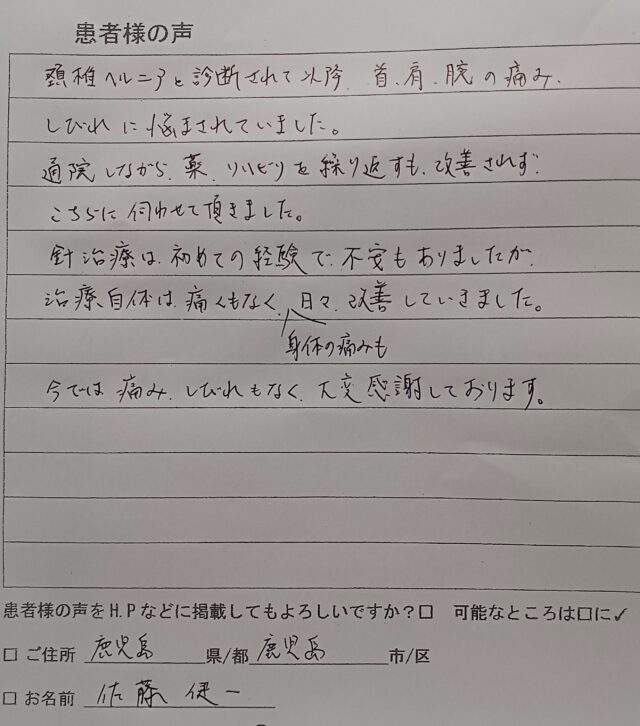 患者様の声
頚椎ヘルニアと診断されて以降、首、肩、腕の痛み、
しびれに悩まされていました。
通院しながら、薬、リハビリを繰り返すも、改善されず、
こちらに伺わせて頂きました。
針治療は、初めての経験で、不安もありましたが、
治療自体は、痛くもなく、日々、改善していきました。
身体の痛みも
今では痛み、しびれもなく、大変感謝しております。
患者様の声をH.Pなどに掲載してもよろしいですか?□ 可能なところは□に✓
□ ご住所 鹿児島 県/都 鹿児島 市/区
□ お名前 佐藤 健一